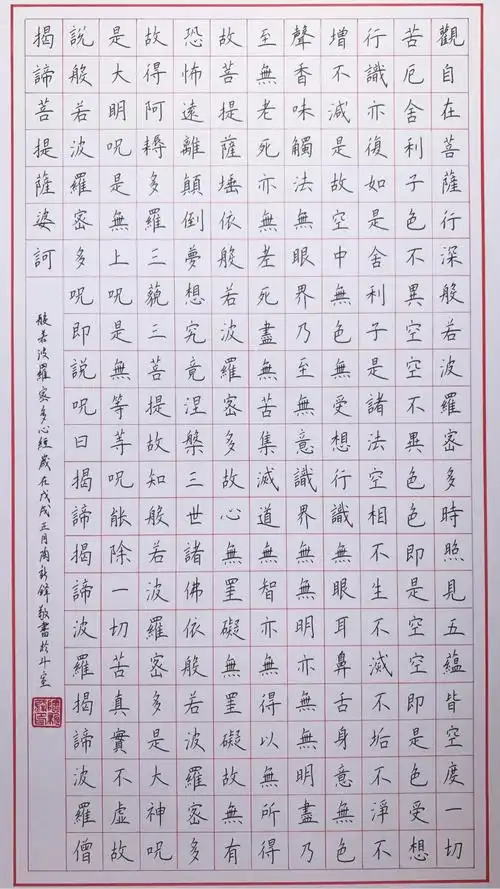 觀自在菩薩行深般若波羅密多時照見五蘊皆空度一切
苦厄舍利子色不異空空不異色色即是空空即是色受想
行識亦復如是舍利子是諸法空相不生不滅不垢不淨不
增不減是故空中無色無受想行識無眼耳鼻舌身意無色
聲香味觸法無眼界乃至無意識界無無明亦無無明盡乃
至無老死亦無老死盡無苦集滅道無智亦無得以無所得
故菩提薩埵依般若波羅密多故心無罣礙無罣礙故無有
恐怖遠離顛倒夢想究竟涅槃三世諸佛依般若波羅密多
故得阿耨多羅三藐三菩提故知般若波羅密多是大神呪
是大明呪是無上呪是無等等呪能除一切苦真實不虛故
說般若波羅密多呪即說呪曰揭諦揭諦波羅揭諦波羅僧
揭諦菩提薩婆訶
般若波羅密多心經歲在戊戌正月陶新鋒敬書於斗室